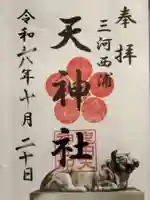 奉拝
三河西浦
天神社
令和六年十月二十日